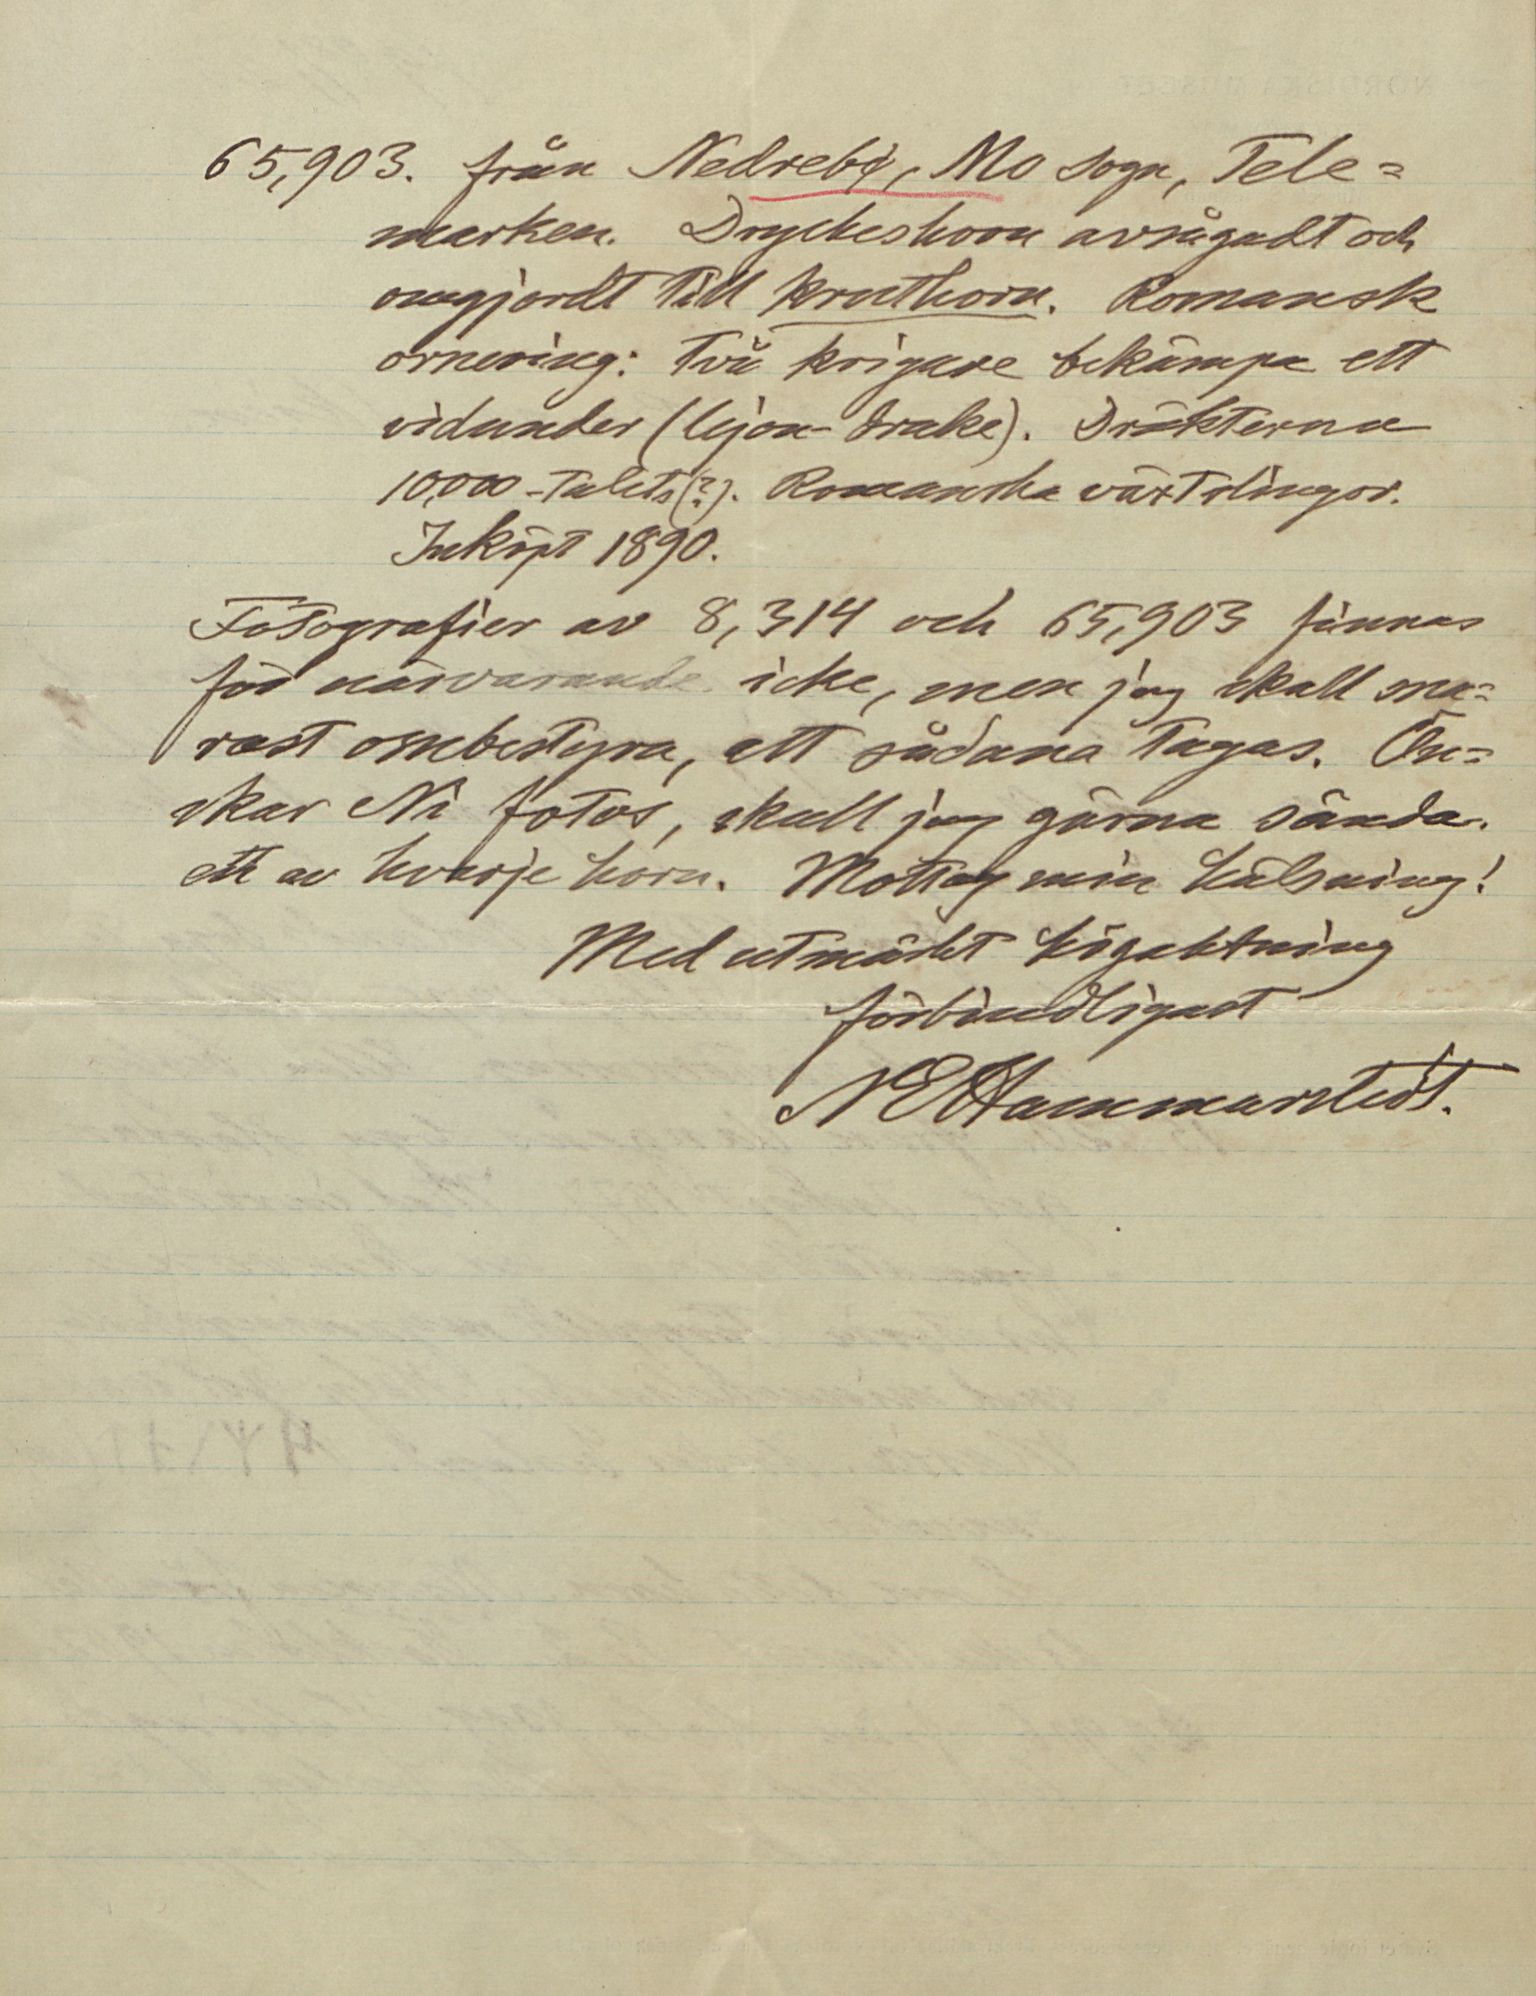 65,903. från Nedrebø, Mo sogn, Tele=
marken. Dryckeshorn avsågadt och
omgjordt till kruthorn. Romansk
ornering: två krigare bekämpa ett
vidunder (lejon-drake). Dräkterna
10,000-talets(?). Romanska växtslingor.
Inköpt 1890.
Fotografier av 8,314 och 65,903 finnas
för närvarande icke, men jag skall sna=
rast ombestyra, att sådana tagas. Ön=
skar Ni fotos, skall jag gärna sända
ett av hvarje horn. Mottag min hälsning!
Med utmärkt högaktning
förbindligast
NEHammarstedt.